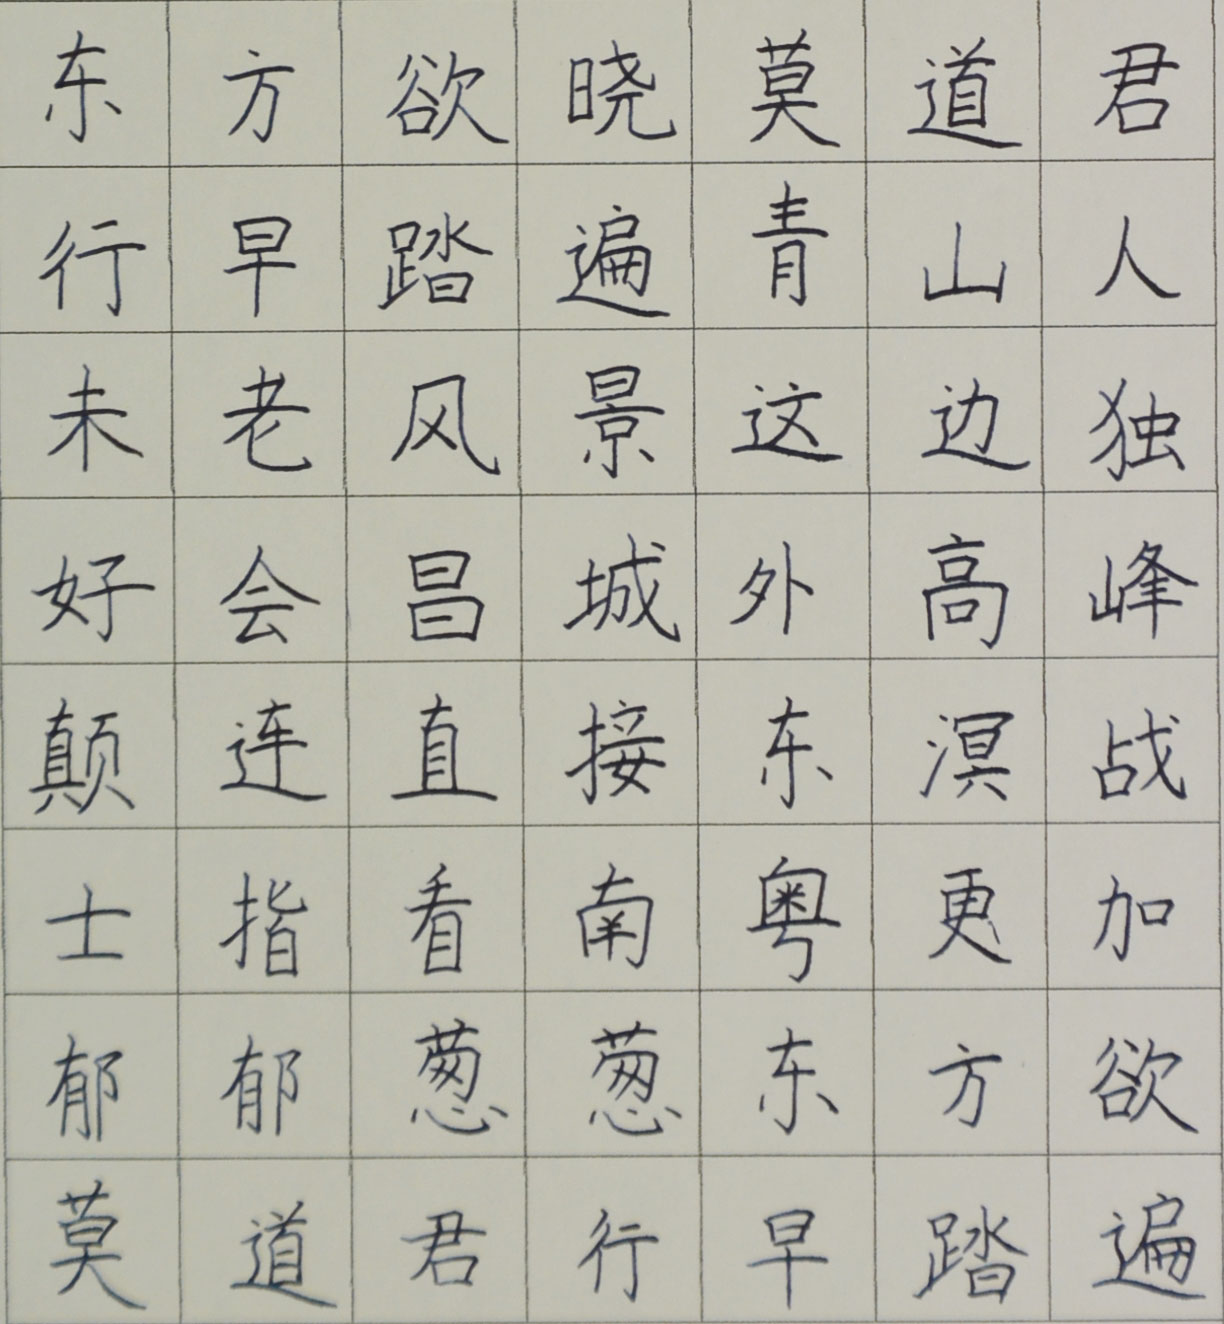 东方欲晓莫道君
行早踏遍青山人
未老风景这边独
好会昌城外高峰
颠连直接东溟战
士指看南粤更加
郁郁葱葱东方欲
莫道君行早踏遍